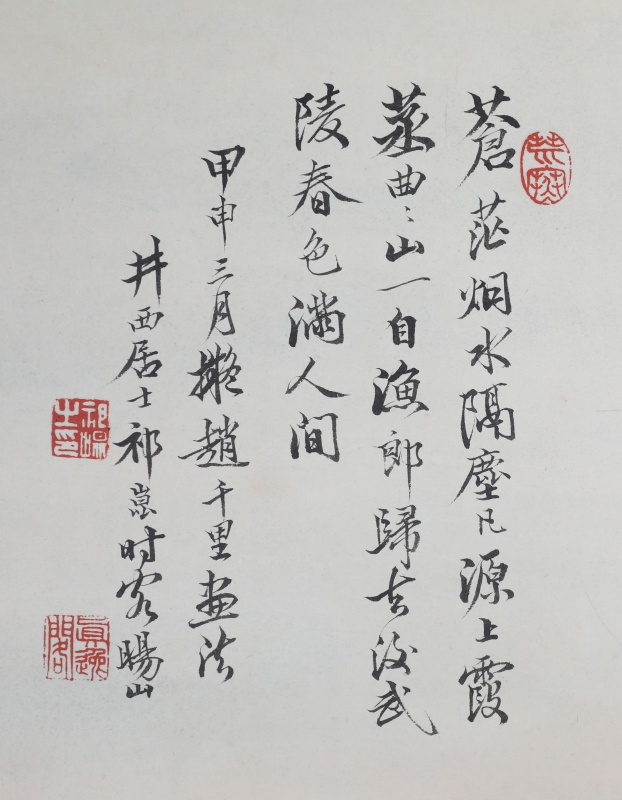 蒼茫烟水隔塵凡源上霞
蒸曲〻山一自漁郎歸去後武
陵春色滿人間
甲申三月擬趙千里畫法
井西居士祁崑时客暘山